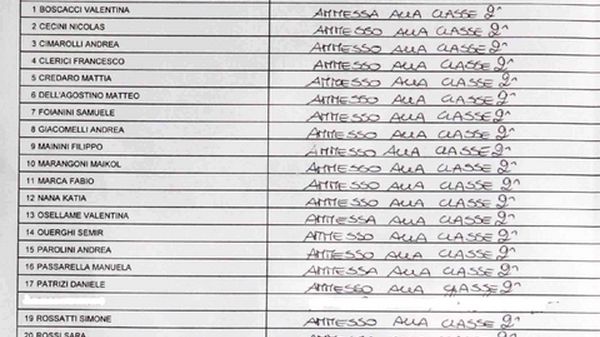 1 BOSCACCI VALENTINA AMMESSA ALLA CLASSE 2^
2 CECINI NICOLAS AMMESSO ALLA CLASSE 2^
3 CIMAROLLI ANDREA AMMESSO ALLA CLASSE 2^
4 CLERICI FRANCESCO AMMESSO ALLA CLASSE 2^
5 CREDARO MATTIA AMMESSO ALLA CLASSE 2^
6 DELL'AGOSTINO MATTEO AMMESSO ALLA CLASSE 2^
7 FOIANINI SAMUELE AMMESSO ALLA CLASSE 2^
8 GIACOMELLI ANDREA AMMESSO ALLA CLASSE 2^
9 MAININI FILIPPO AMMESSO ALLA CLASSE 2^
10 MARANGONI MAIKOL AMMESSO ALLA CLASSE 2^
11 MARCA FABIO AMMESSO ALLA CLASSE 2^
12 NANA KATIA AMMESSO ALLA CLASSE 2^
13 OSELLAME VALENTINA AMMESSA ALLA CLASSE 2^
14 OUERGHI SEMIR AMMESSO ALLA CLASSE 2^
15 PAROLINI ANDREA AMMESSO ALLA CLASSE 2^
16 PASSARELLA MANUELA AMMESSA ALLA CLASSE 2^
17 PATRIZI DANIELE AMMESSO ALLA CLASSE 2^
19 ROSSATTI SIMONE AMMESSO ALLA CLASSE 2^
20 ROSSI SARA